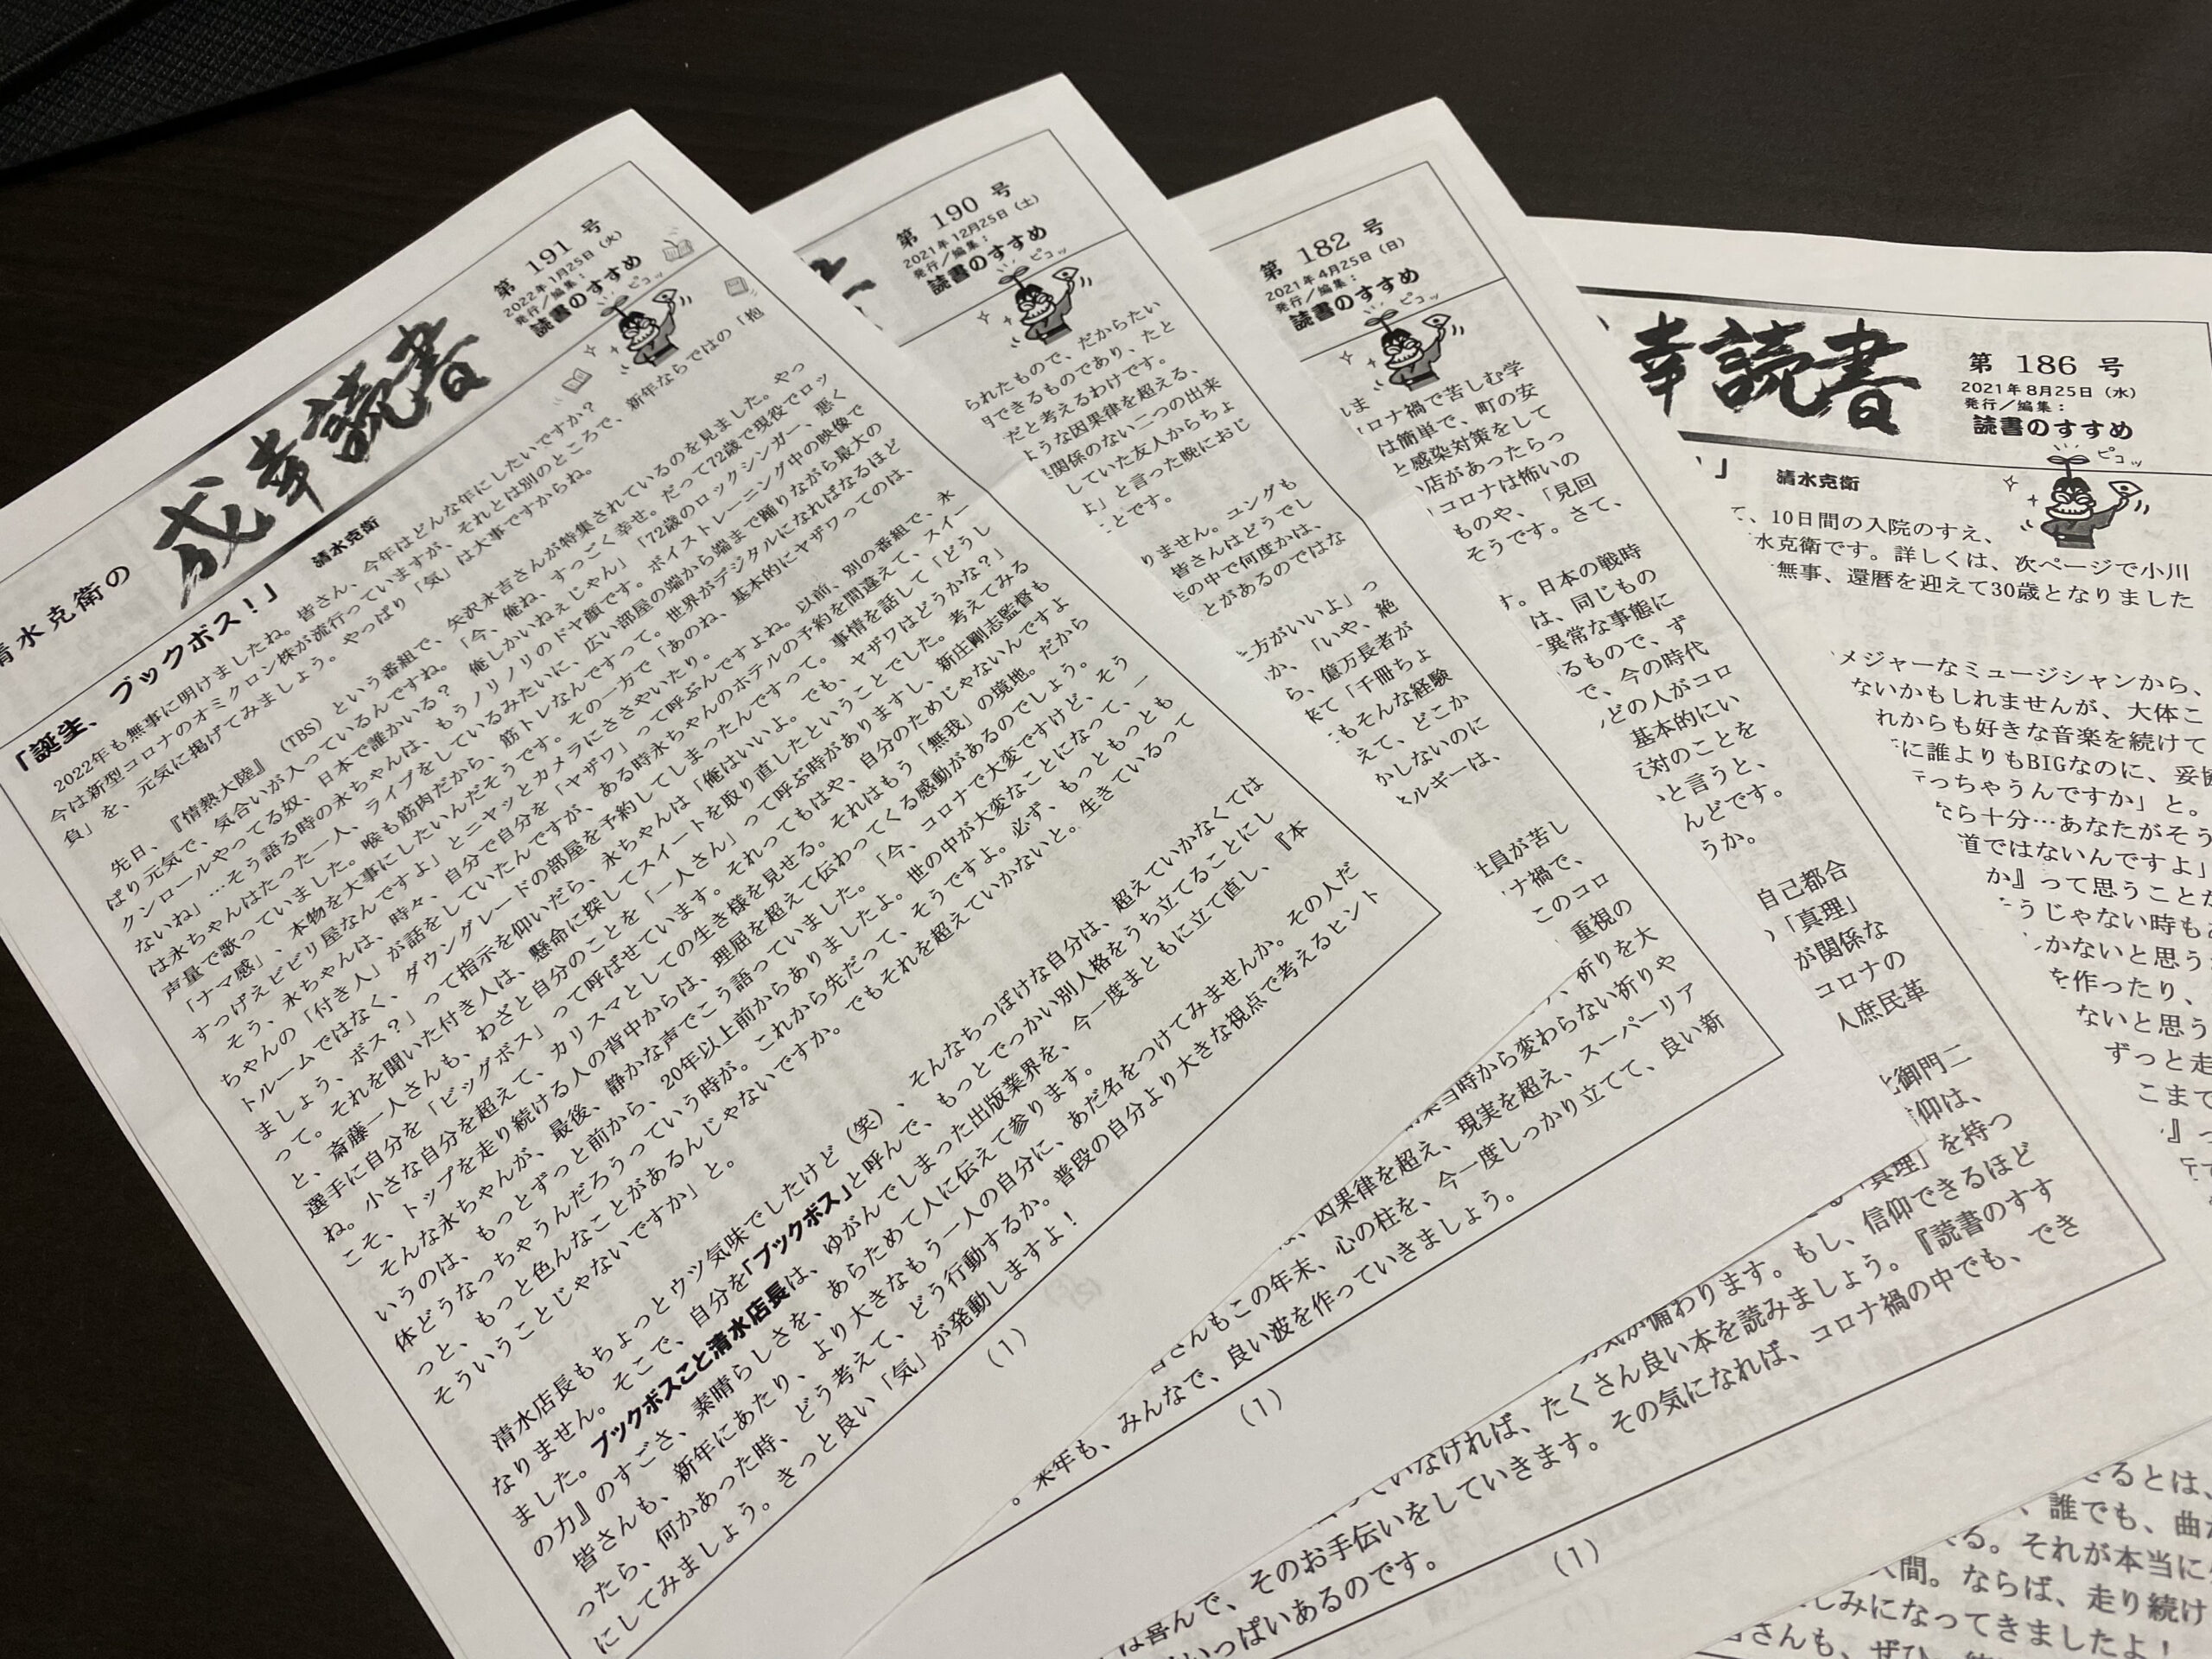 清水克衛の
成幸読書
第 191 号
2022年1月25日（火）
発行／編集：
読書のすすめ
ピコッ
「誕生、ブックボス！」 清水克衛
2022年も無事に明けましたね。皆さん、今年はどんな年にしたいですか？
今は新型コロナのオミクロン株が流行っていますが、それとは別のところで、新年ならではの「抱
負」を、元気に掲げてみましょう。やっぱり「気」は大事ですからね。
先日、『情熱大陸』（TBS）という番組で、矢沢永吉さんが特集されているのを見ました。やっ
ぱり元気で、気合いが入っているんですね。「今、俺ね、すっごく幸せ。だって72歳で現役でロッ
クンロールやってる奴、日本で誰かいる？ 俺しかいねぇじゃん」「72歳のロックシンガー、悪く
ないね」…そう語る時の永ちゃんは、もうノリノリのドヤ顔です。ボイストレーニング中の映像で
は永ちゃんはたった一人、ライブをしているみたいに、広い部屋の端から端まで踊りながら最大の
声量で歌っていました。喉も筋肉だから、筋トレなんですって。世界がデジタルになればなるほど
「ナマ感」、本物を大事にしたいんだそうです。その一方で「あのね、基本的にヤザワってのは、
すっげえビビリ屋なんですよ」とニヤッとカメラにささやいたり。
そう、永ちゃんは、時々、自分で自分を「ヤザワ」って呼ぶんですよね。以前、別の番組で、永
ちゃんの「付き人」が話をしていたんですが、ある時永ちゃんのホテルの予約を間違えて、スイー
トルームではなく、ダウングレードの部屋を予約してしまったんですって。事情を話して「どうし
ましょう、ボス？」って指示を仰いだら、永ちゃんは「俺はいいよ。でも、ヤザワはどうかな？」
って。それを聞いた付き人は、懸命に探してスイートを取り直したということでした。考えてみる
と、斎藤一人さんも、わざと自分のことを「一人さん」って呼ぶ時がありますし、新庄剛志監督も
選手に自分を「ビッグボス」って呼ばせています。それってもはや、自分のためじゃないんですよ
ね。小さな自分を超えて、カリスマとしての生き様を見せる。それはもう「無我」の境地。だから
こそ、トップを走り続ける人の背中からは、理屈を超えて伝わってくる感動があるのでしょう。
そんな永ちゃんが、最後、静かな声でこう語っていました。「今、コロナで大変ですけど、そう
いうのは、もっとずっと前から、20年以上前からありましたよ。世の中が大変なことになって、一
体どうなっちゃうんだろうっていう時が。これから先だって、そうですよ。必ず、もっともっとも
っと、もっと色んなことがあるんじゃないですか。でもそれを超えていかないと。生きているって
そういうことじゃないですか」と。
清水店長もちょっとウツ気味でしたけど（笑）、そんなちっぽけな自分は、超えていかなくては
なりません。そこで、自分を「ブックボス」と呼んで、もっとでっかい別人格をうち立てることにし
ました。ブックボスこと清水店長は、ゆがんでしまった出版業界を、今一度まともに立て直し、『本
の力』のすごさ、素晴らしさを、あらためて人に伝えて参ります。
皆さんも、新年にあたり、より大きなもう一人の自分に、あだ名をつけてみませんか。その人だ
ったら、何かあった時、どう考えて、どう行動するか。普段の自分より大きな視点で考えるヒント
にしてみましょう。きっと良い「気」が発動しますよ！
（1）
第 190 号
2021年12月25日（土）
発行／編集：
読書のすすめ
ピコッ
られたもので、だからたい
できるものであり、たと
だと考えるわけです。
ような因果律を超える、
関係のない二つの出来
していた友人からちょ
よ」と言った晩におじ
ことです。
りません。ユングも
皆さんはどうでし
生の中で何度かは、
とがあるのではな
方がいいよ」っ
か、「いや、絶
ら、億万長者が
来て「千冊ちょ
もそんな経験
えて、どこか
かしないのに
ルギーは、
、祈りを大
当時から変わらない祈りや
因果律を超え、現実を超え、スーパーリア
さんもこの年末、心の柱を、今一度しっかり立てて、良い新
。来年も、みんなで、良い波を作っていきましょう。
（1）
第 182 号
2021年4月25日（日）
発行／編集：
読書のすすめ
ピコッ
ロナ禍で苦しむ学
は簡単で、町の安
と感染対策をして
店があったらっ
コロナは怖いの
ものや、「見回
そうです。さて、
す。日本の戦時
は、同じもの
異常な事態に
るもので、ず
で、今の時代
どの人がコロ
基本的にい
対のことを
と言うと、
んどです。
うか。
社員が苦し
ナ禍で、
このコロ
重視の
自己都合
「真理」
が関係な
コロナの
人庶民革
御門二
信仰は、
「真理」を持つ
備わります。もし、信仰できるほど
いなければ、たくさん良い本を読みましょう。『読書のすす
んで、そのお手伝いをしていきます。その気になれば、コロナ禍の中でも、でき
いっぱいあるのです。
（1）
幸読書
第 186 号
2021年8月25日（水）
発行／編集：
読書のすすめ
ピコッ
」 清水克衛
、10日間の入院のすえ、
水克衛です。詳しくは、次ページで小川
無事、還暦を迎えて30歳となりました
メジャーなミュージシャンから、
ないかもしれませんが、大体こ
れからも好きな音楽を続けて
に誰よりもBIGなのに、妥協
っちゃうんですか」と。
なら十分…あなたがそう
道ではないんですよ」
か』って思うことが
うじゃない時も
かないと思う
を作ったり、
ないと思う
ずっと走
こまで
』っ
るとは、
、誰でも、曲が
る。それが本当に
人間。ならば、走り続け
しみになってきましたよ！
さんも、ぜひ